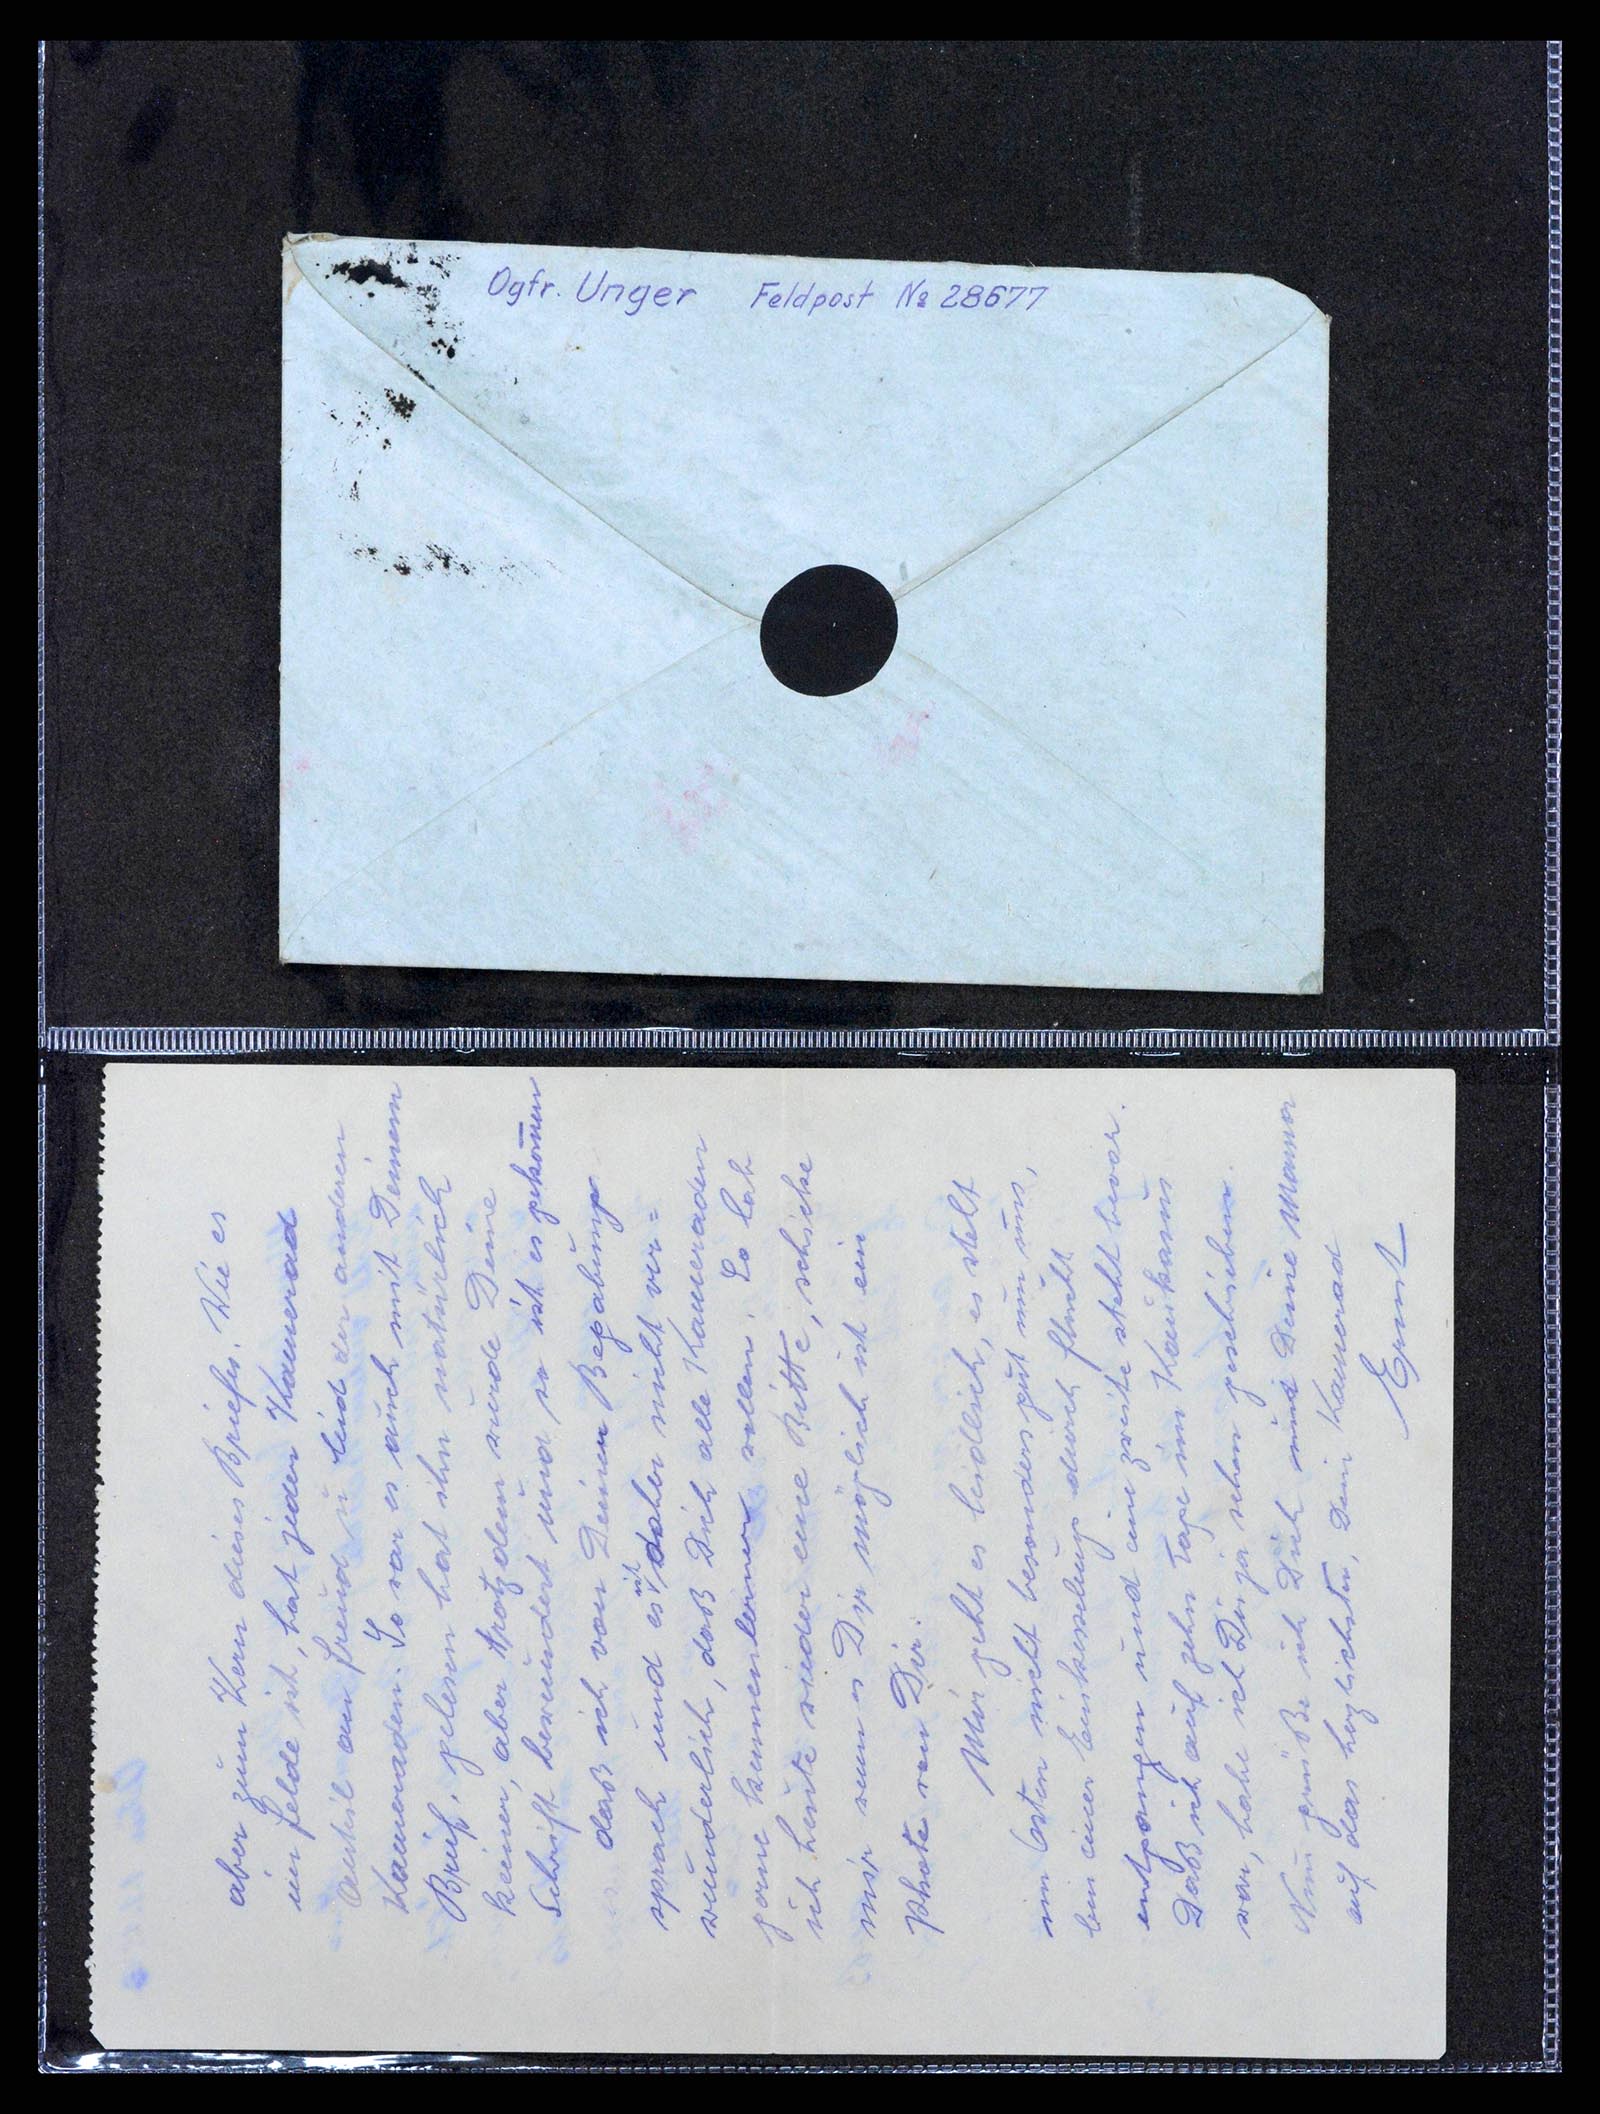 Ogfr. Unger Feldpost № 28677
aber zum Kern dieses Briefes. Wie es
im Felde ist, hat jeder Kamerad
Anteil am Freud u Leid der anderen
Kameraden. So war es auch mit Deinem
Brief, gelesen hat ihn natürlich
keiner, aber trotzdem wurde Deine
Schrift bewundert und so ist es gekom̅en
daß ich von Deiner Begabung
sprach und es ist daher nicht ver=
wunderlich, daß Dich alle Kameraden
gerne kennenlernen wollen. So hab
ich heute wieder eine Bitte, schicke
mir wenn es Dir möglich ist ein
Photo von Dir.
Mir geht es leidlich, es steht
im Osten nicht besonders gut um uns,
bin einer Einkesselung durch Flucht
entgangen und eine zweite steht bevor.
Daß ich auf zehn Tage im Kaukasus
war, habe ich Dir ja schon geschrieben.
Nun grüße ich Dich und Deine Mama
auf das herzlichste, Dein Kamerad
Ernst